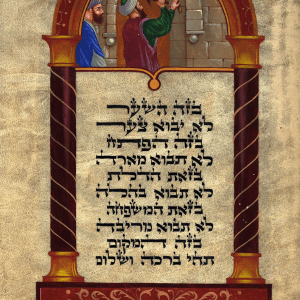 בזה השער
לא יבוא צער
בזה הפתח
לא תבוא מארה
בזאת הדלת
לא תבוא בהלה
בזאת המשפחה
לא תבוא מריבה
בזה המקום
תהי ברכה ושלום